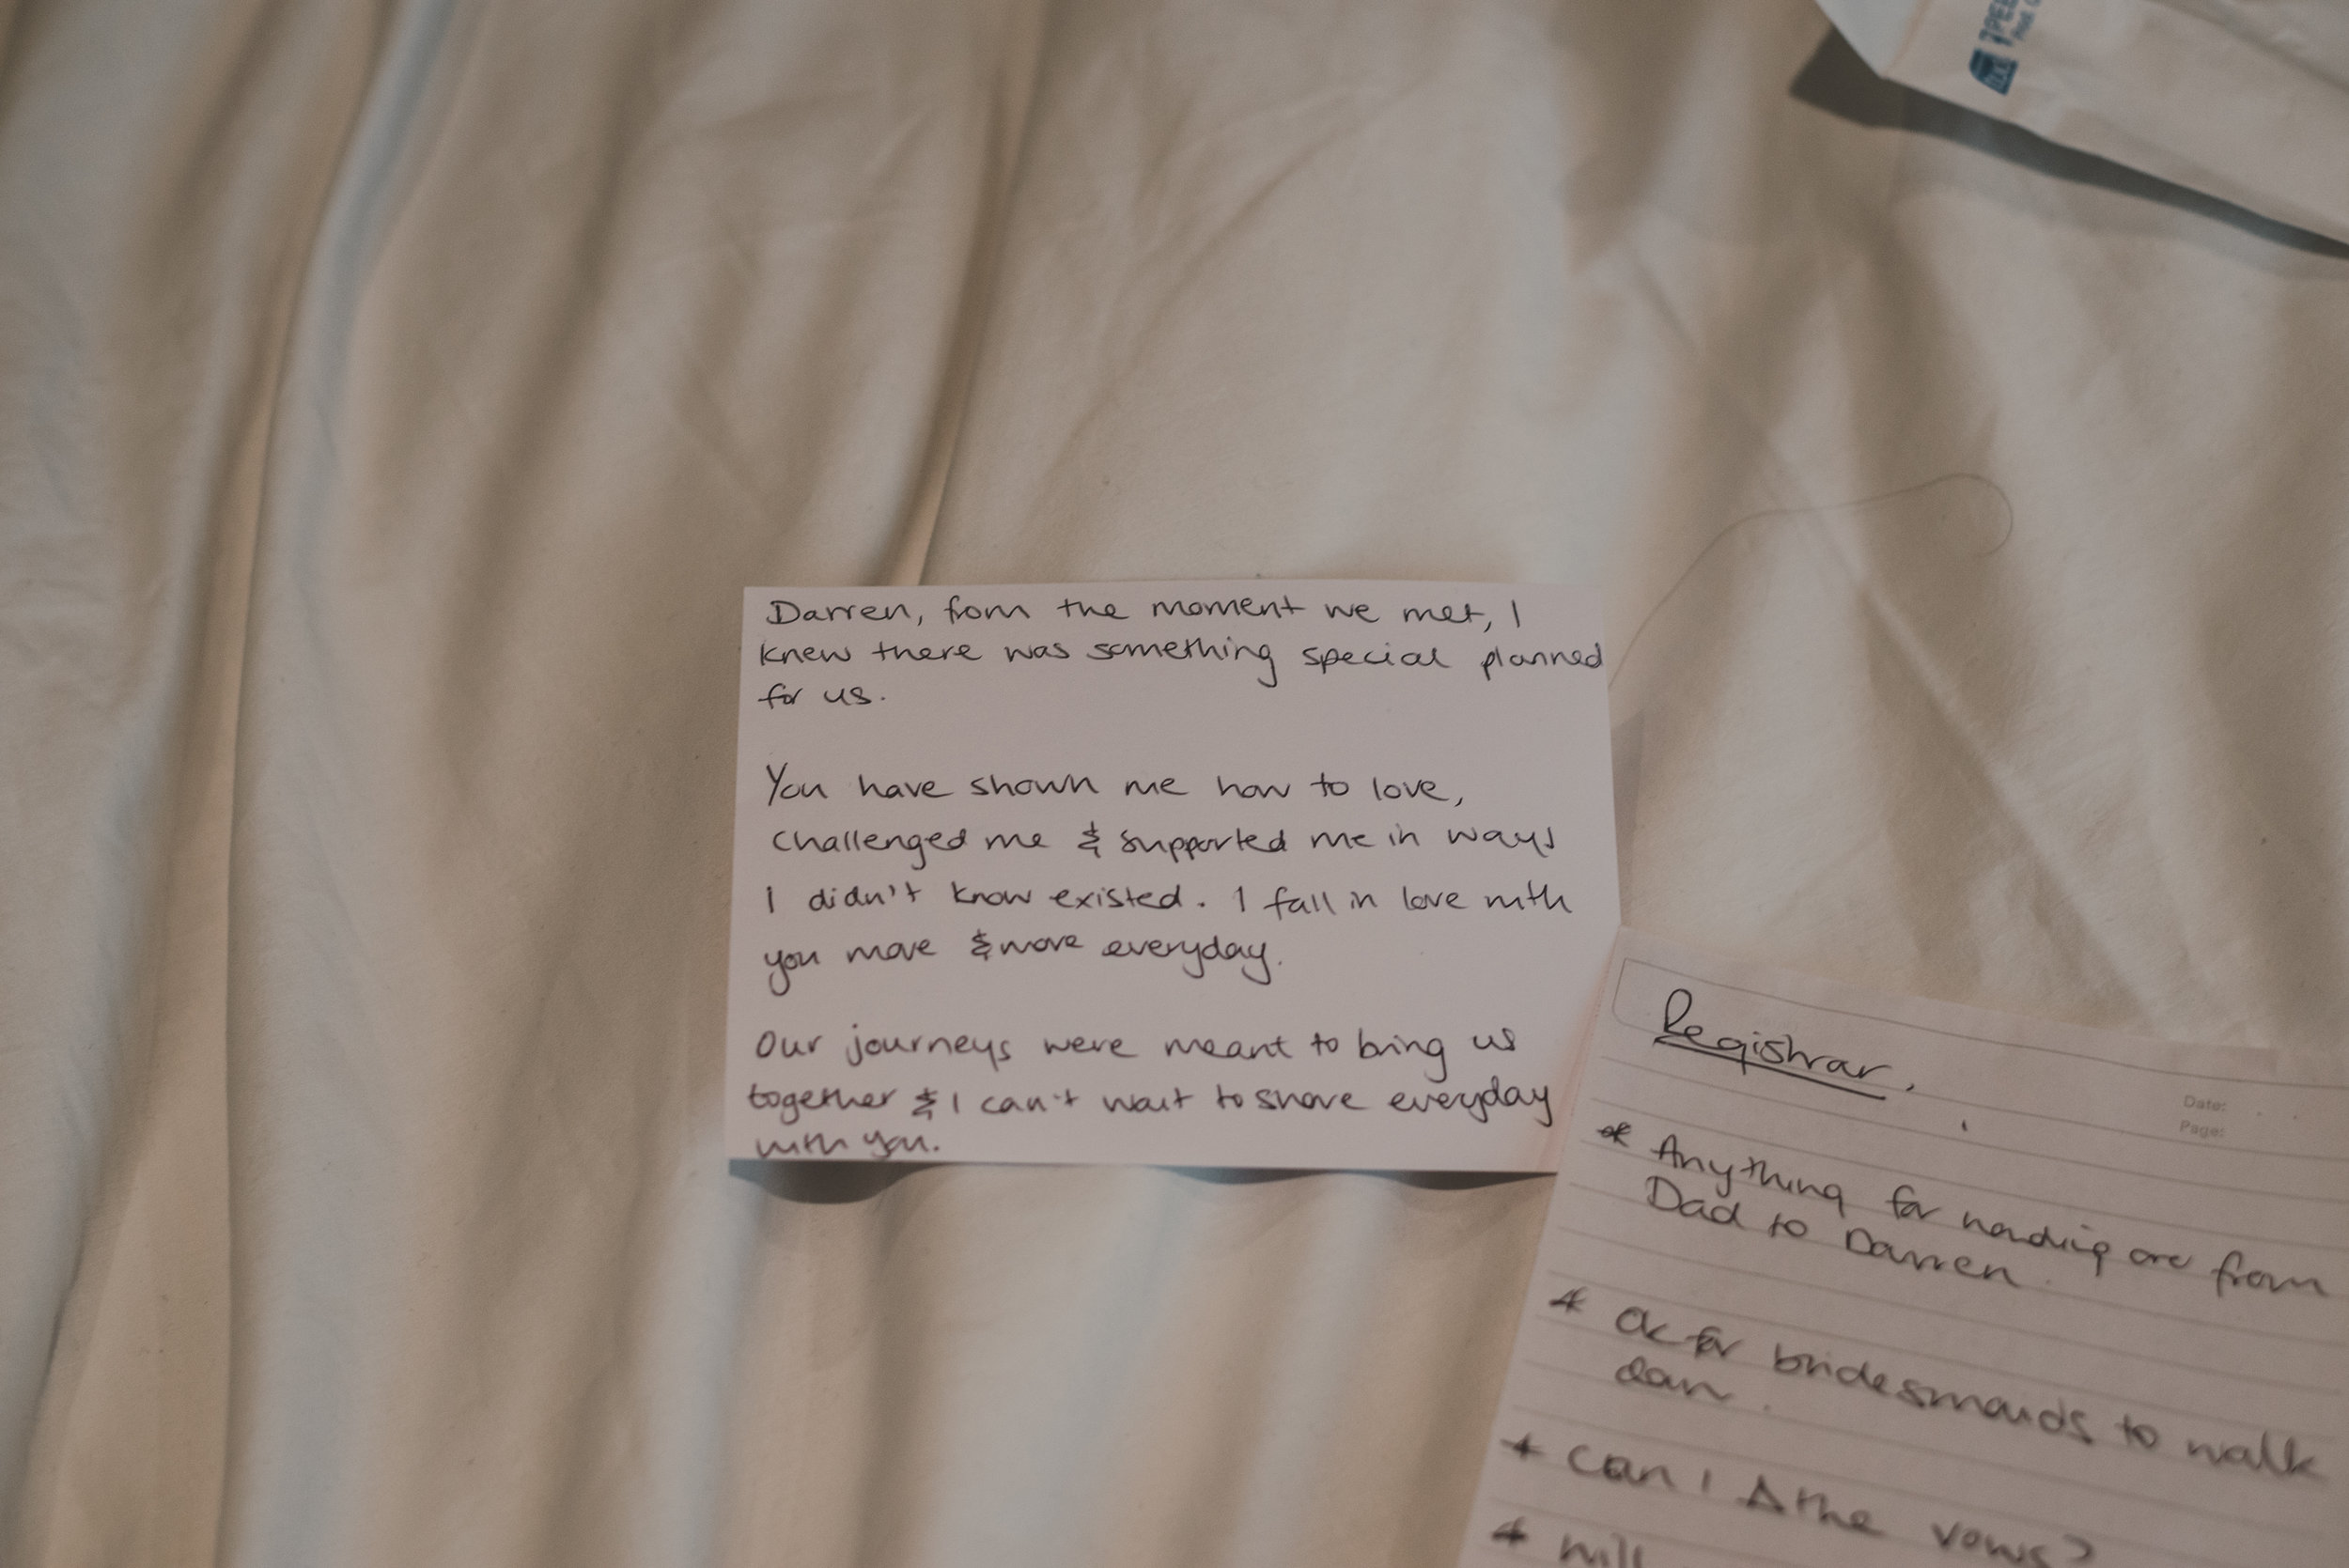 Darren, from the moment we met, I
knew there was something special planned
for us.
You have shown me how to love,
challenged me & supported me in ways
I didn't know existed. I fall in love with
you more & more everyday.
Our journeys were meant to bring us
together & I can't wait to share everyday
with you.
Registrar.
Date:
Page:
* Anything for handing over from
Dad to Darren.
* Ok for bridesmaids to walk
down.
* Can I Δ the vows?
* Will